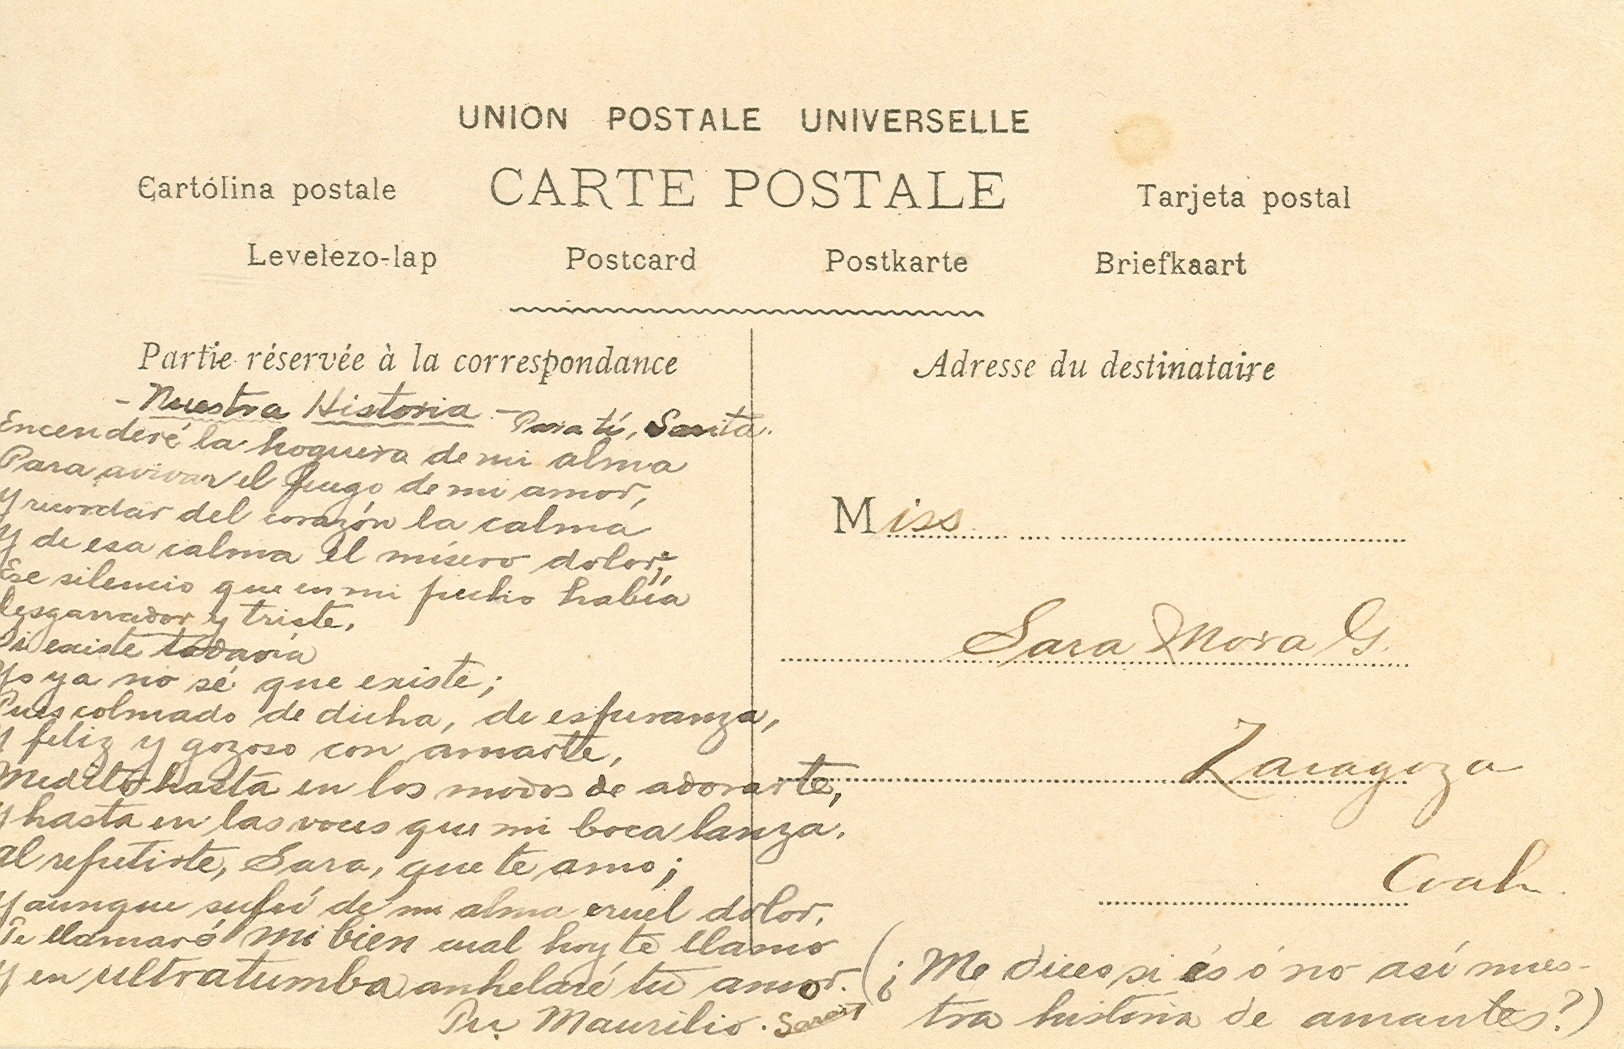 UNION POSTALE UNIVERSELLE
Cartólina postale CARTE POSTALE Tarjeta postal
Levelezo-lap Postcard Postkarte Briefkaart
Partie réservée à la correspondance
- Nuestra Historia - Para tí, Sarita.
Encenderé la hoguera de mi alma
Para avivar el fuego de mi amor,
Y recordar del corazón la calma
Y de esa calma el mísero dolor;
Ese silencio que en mi pecho había
desgarrador y triste,
Si existe todavía
Yo ya no sé que existe;
Pues colmado de dicha, de esperanza,
Y feliz y gozoso con amarte,
Medito hasta en los modos de adorarte,
Y hasta en las voces que mi boca lanza.
Al repetirte, Sara, que te amo;
Y aunque sufrí de mi alma cruel dolor,
Te llamaré mi bien cual hoy te llamo
Y en ultratumba anhelaré tu amor.
Tu Maurilio.
(¿Me dices si és ó no así nues-
tra historia de amantes?)
Adresse du destinataire
Miss
Sara Mora G.
Zaragoza
Coah.